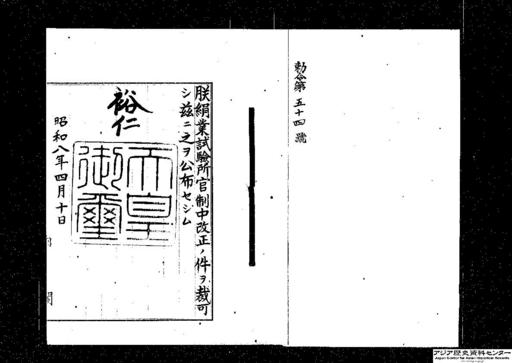 勅令第五十四號
朕絹業試驗所官制中改正ノ件ヲ裁可
シ茲ニ之ヲ公布セシム
裕仁
天皇御璽
昭和八年四月十日
アジア歴史資料センター
Japan Center for Asian Historical Records